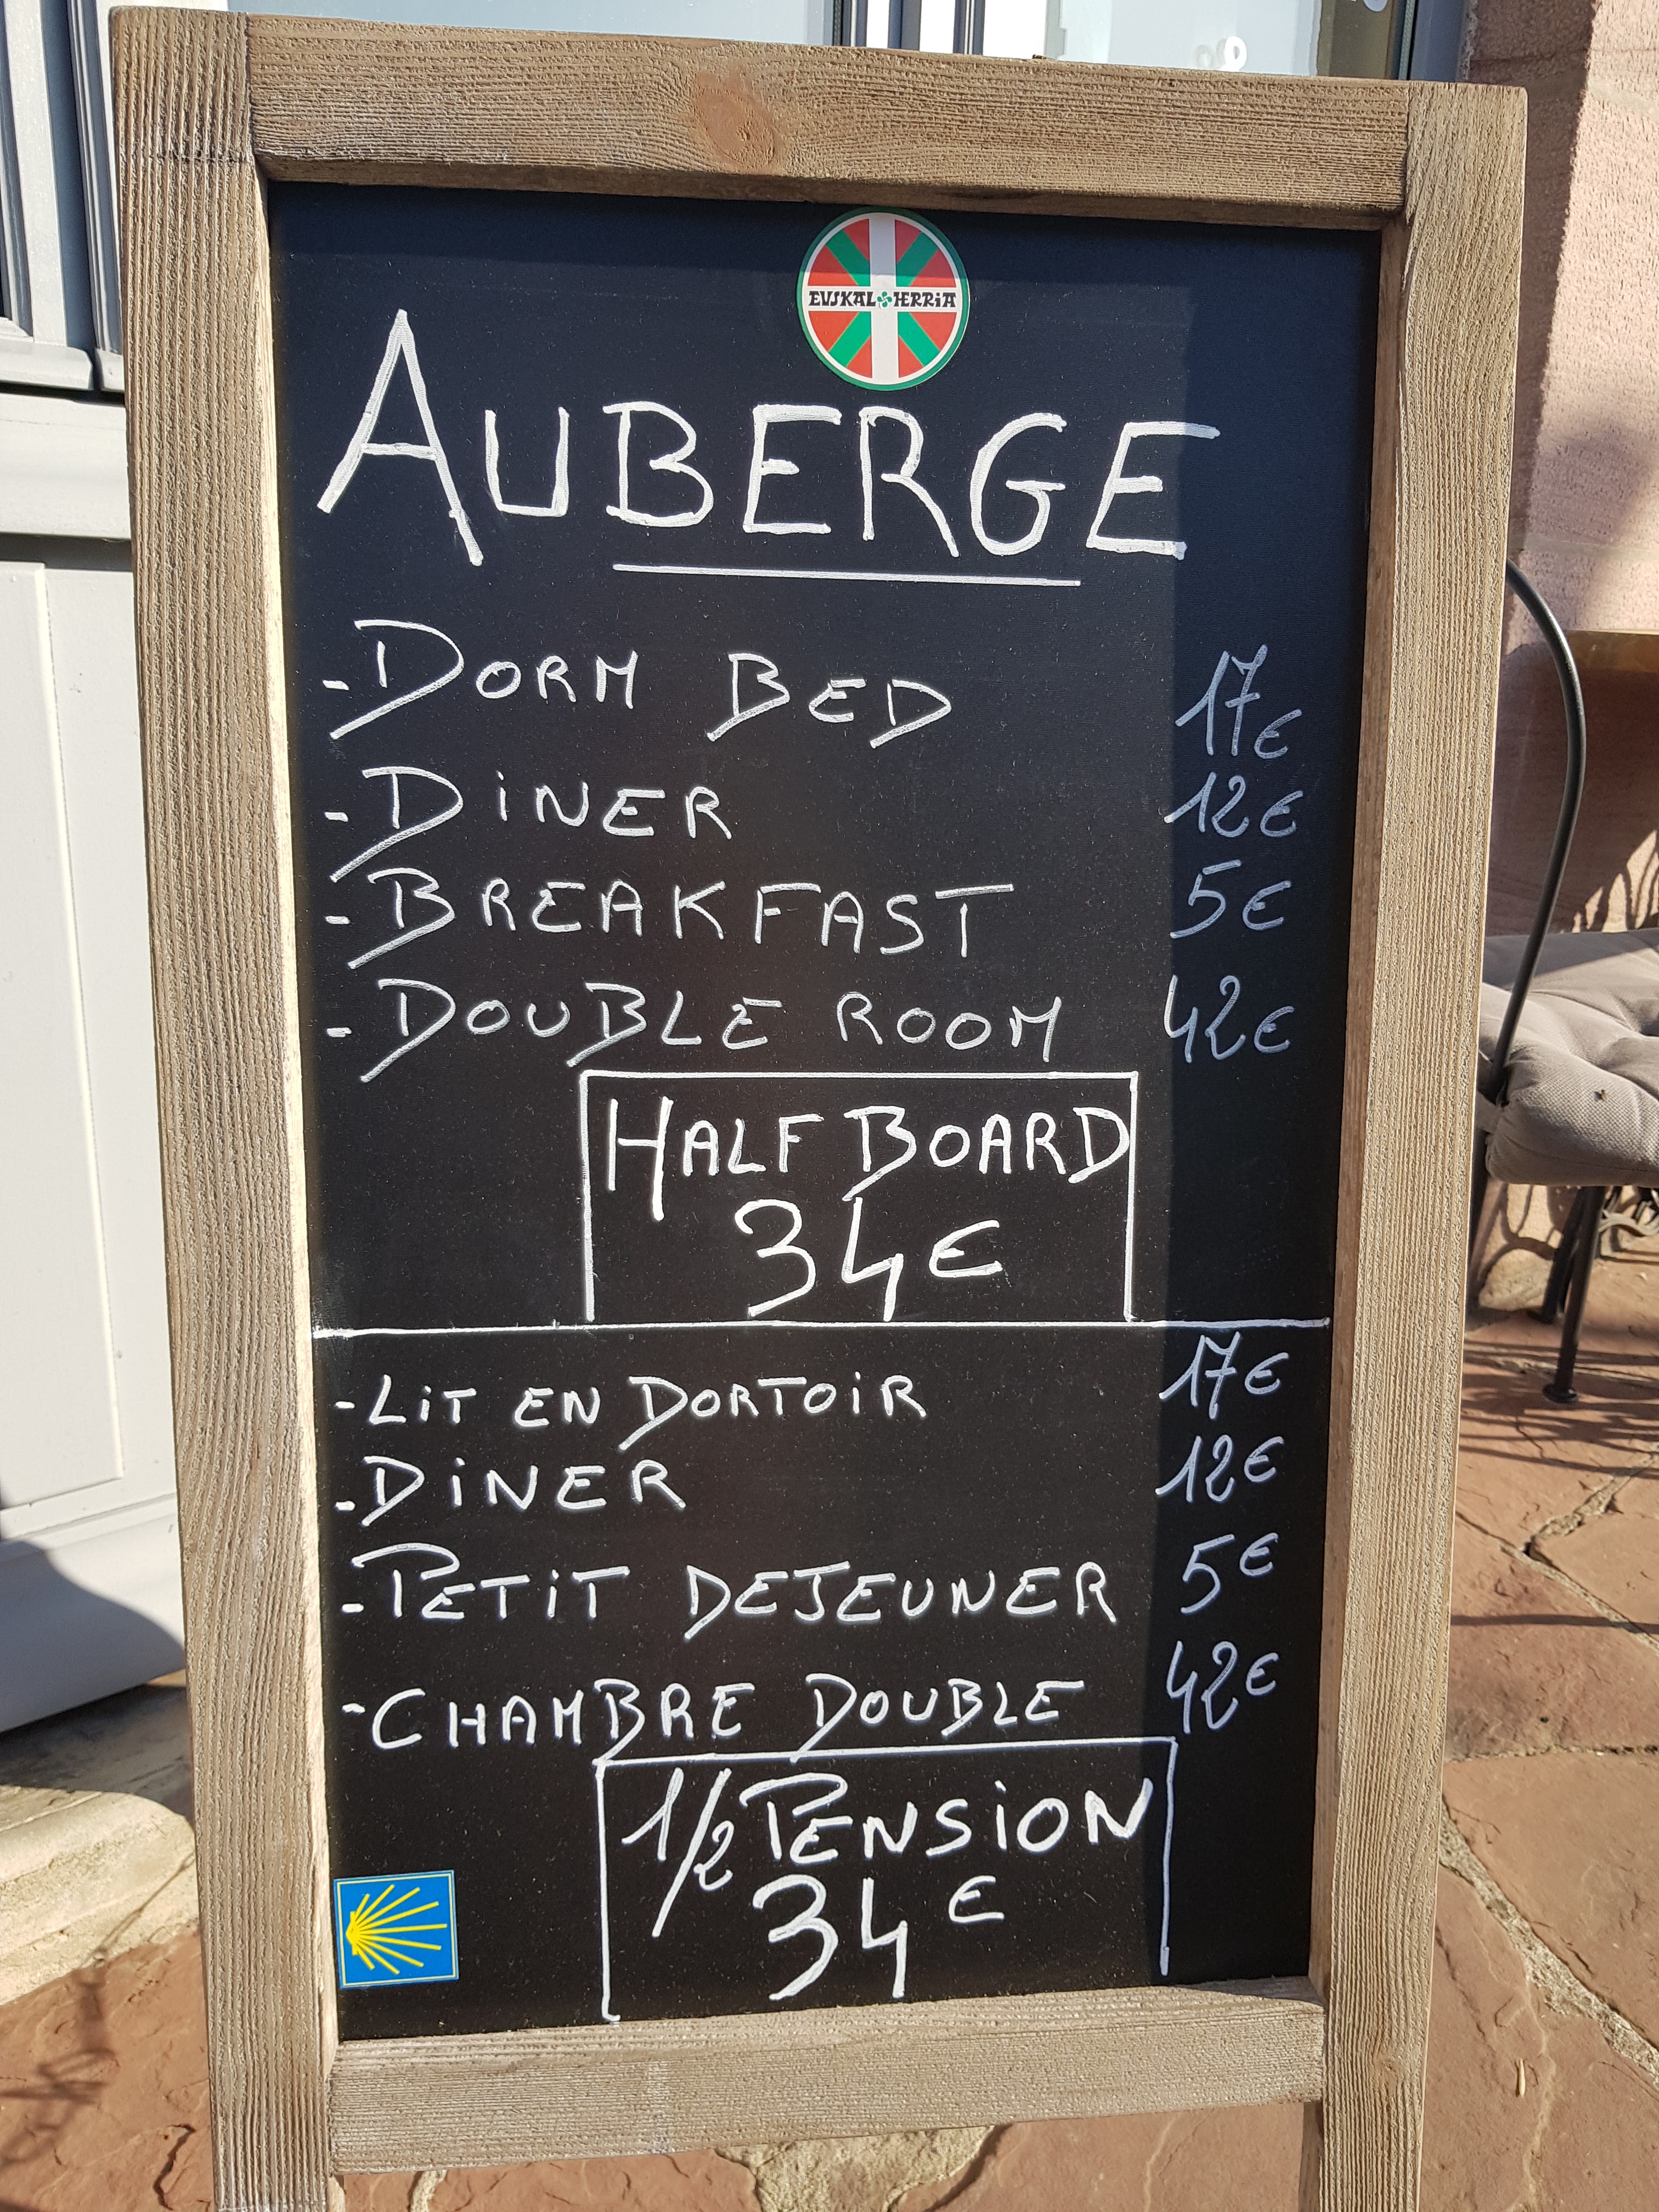 EUSKAL HERRIA
AUBERGE
- DORM BED 17€
- DINER 12€
- BREAKFAST 5€
- DOUBLE ROOM 42€
HALF BOARD
34€
- LIT EN DORTOIR 17€
- DINER 12€
- PETIT DEJEUNER 5€
- CHAMBRE DOUBLE 42€
1/2 PENSION
34€